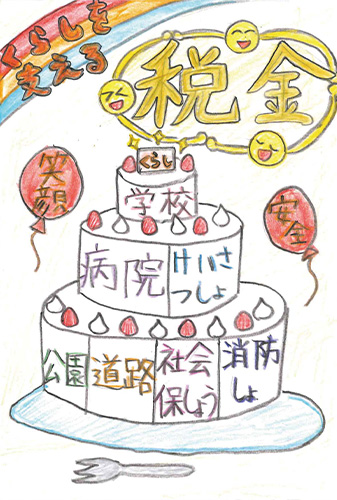 くらしを
支える
税金
くらし
笑顔
安全
学校
病院
けいさ
つしょ
公園
道路
社会
保しょう
消防
しょ